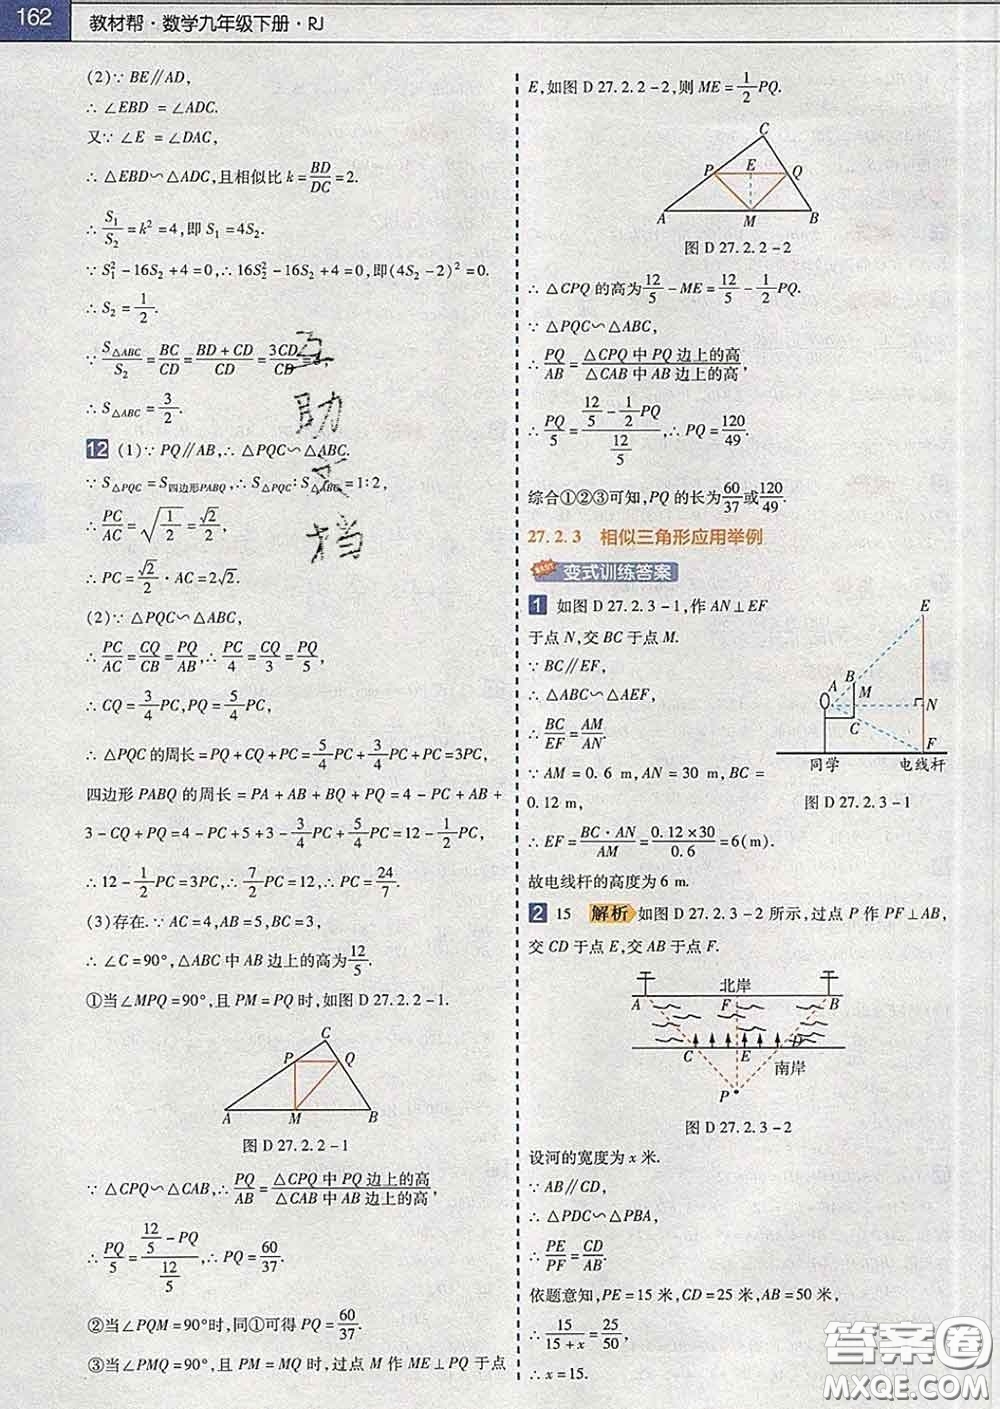 162 教材帮·数学九年级下册·RJ
(2)∵ BE∥AD,
∴ ∠EBD = ∠ADC.
又∵ ∠E = ∠DAC,
∴ △EBD∽△ADC,且相似比 k=BD/DC=2.
∴ S₁/S₂=k²=4,即 S₁=4S₂.
∵ S₁²-16S₂+4=0,∴ 16S₂²-16S₂+4=0,即(4S₂-2)²=0.
∴ S₂=1/2.
∵ S△ABC/S₂=BC/CD=(BD+CD)/CD=3CD/CD
∴ S△ABC=3/2.
12 (1)∵ PQ∥AB,∴ △PQC∽△ABC.
∵ S△PQC=S四边形PABQ,∴ S△PQC:S△ABC=1:2,
∴ PC/AC=√(1/2)=√2/2,
∴ PC=√2/2·AC=2√2.
(2)∵ △PQC∽△ABC,
∴ PC/AC=CQ/CB=PQ/AB,∴ PC/4=CQ/3=PQ/5,
∴ CQ=3/4PC,PQ=5/4PC,
∴ △PQC的周长=PQ+CQ+PC=5/4PC+3/4PC+PC=3PC,
四边形 PABQ 的周长=PA+AB+BQ+PQ=4-PC+AB+
3-CQ+PQ=4-PC+5+3-3/4PC+5/4PC=12-1/2PC,
∴ 12-1/2PC=3PC,∴ 7/2PC=12,∴ PC=24/7.
(3)存在.∵ AC=4,AB=5,BC=3,
∴ ∠C=90°,△ABC 中 AB 边上的高为12/5.
①当∠MPQ=90°,且 PM=PQ 时,如图 D 27.2.2-1.
C
P Q
A M B
图 D 27.2.2-1
∵ △CPQ∽△CAB,∴ PQ/AB=△CPQ 中 PQ 边上的高/△CAB 中 AB 边上的高,
∴ PQ/5=(12/5-PQ)/(12/5),∴ PQ=60/37.
②当∠PQM=90°时,同①可得 PQ=60/37.
③当∠PMQ=90°,且 PM=MQ 时,过点 M 作 ME⊥PQ 于点
E,如图 D 27.2.2-2,则 ME=1/2PQ.
C
P E Q
A M B
图 D 27.2.2-2
∴ △CPQ 的高为12/5-ME=12/5-1/2PQ.
∵ △PQC∽△ABC,
∴ PQ/AB=△CPQ 中 PQ 边上的高/△CAB 中 AB 边上的高,
∴ PQ/5=(12/5-1/2PQ)/(12/5),∴ PQ=120/49.
综合①②③可知,PQ 的长为60/37或120/49.
27.2.3 相似三角形应用举例
变式训练答案
1 如图 D 27.2.3-1,作 AN⊥EF
于点 N,交 BC 于点 M.
∵ BC∥EF,
∴ △ABC∽△AEF,
∴ BC/EF=AM/AN.
∵ AM=0.6 m,AN=30 m,BC=
0.12 m,
E
B
A M
N
C
F
同学 电线杆
图 D 27.2.3-1
∴ EF=BC·AN/AM=0.12×30/0.6=6(m).
故电线杆的高度为 6 m.
2 15 解析 如图 D 27.2.3-2 所示,过点 P 作 PF⊥AB,
交 CD 于点 E,交 AB 于点 F.
北岸
A F B
C E D
南岸
P
图 D 27.2.3-2
设河的宽度为 x 米.
∵ AB∥CD,
∴ △PDC∽△PBA,
∴ PE/PF=CD/AB.
依题意知,PE=15 米,CD=25 米,AB=50 米,
∴ 15/(15+x)=25/50,
∴ x=15.
互助文档
答案圈
MXQE.COM